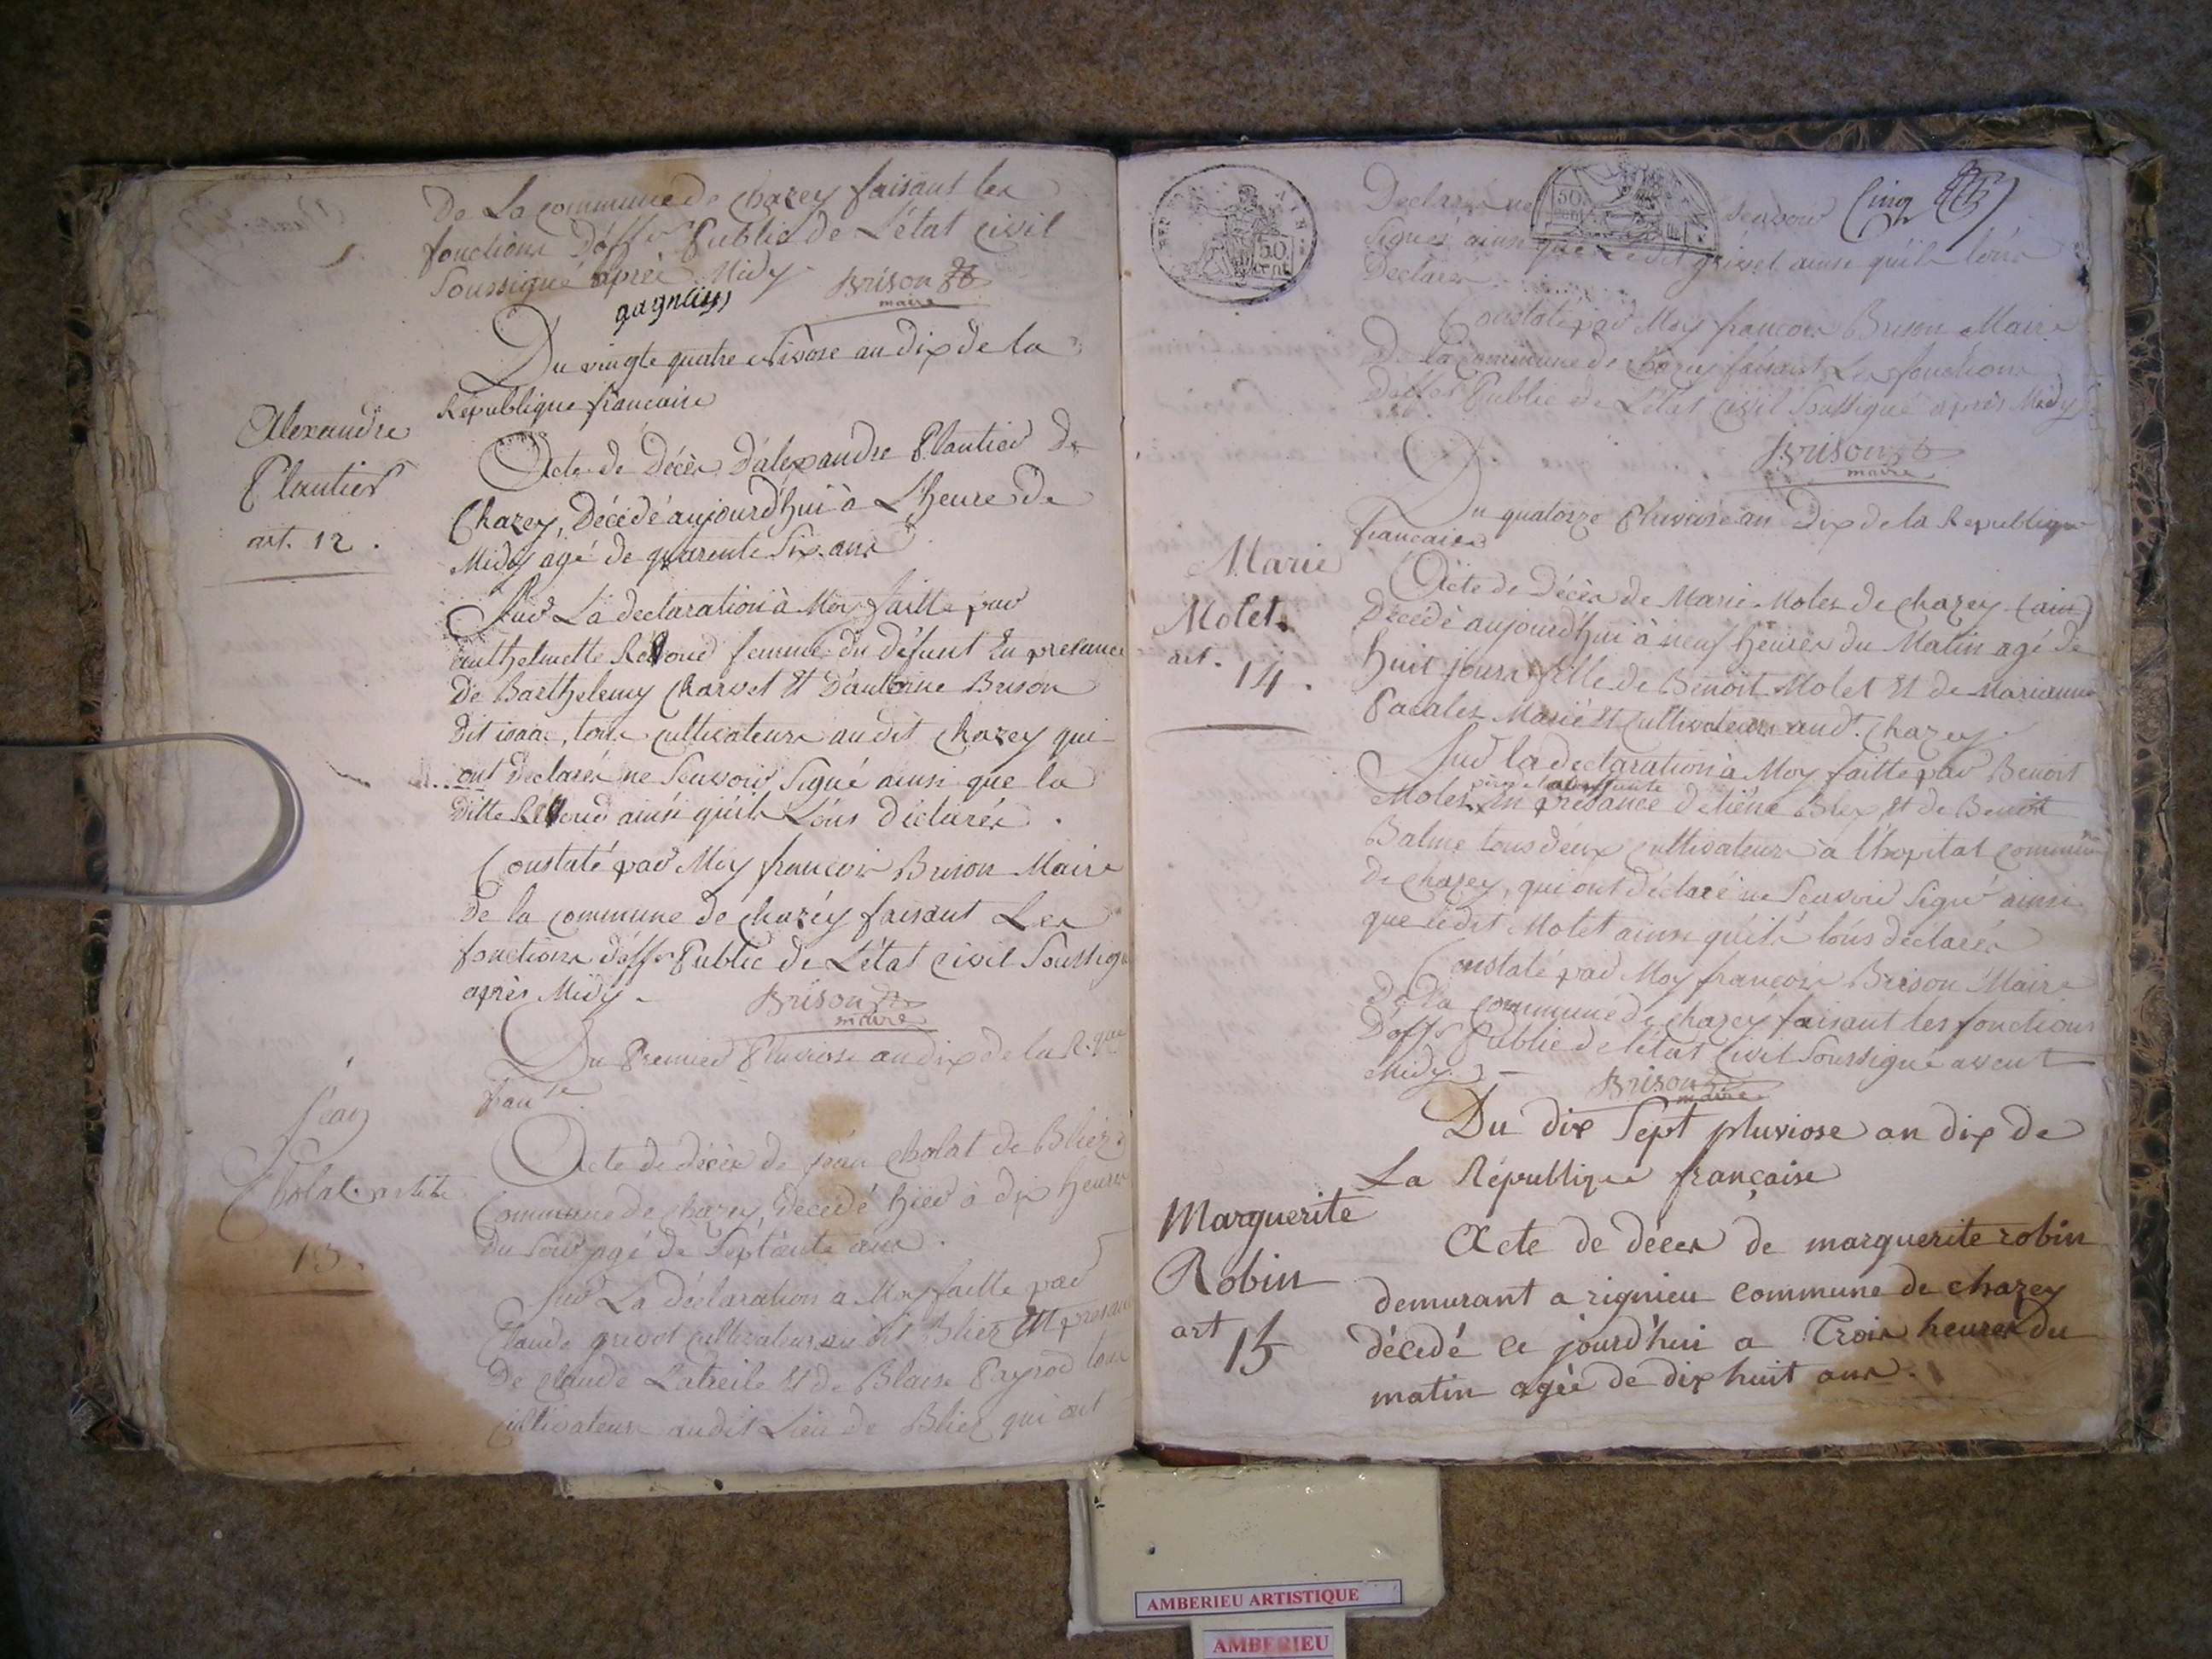 De La commune de Chazey faisant les
fonctions D'off.er Public de L'état Civil
Soussigné après Midy
Brison
maire
gagneux
Du vingte quatre Nivose an dix de la
République francaise
Alexandre
Plantier
art. 12.
Acte de Décès D'alexandre Plantier De
Chazey, Décédé aujourd'hui à L'heure De
Midy agé de quarente Six ans
Sur La declaration à Moy faitte par
anthelmette femme du défunt En presance
De Barthelemy Charvet Et D'antoine Brison
Dit isaac, tous cultivateurs au dit Chazey qui
ont Declarés ne Scavoir Signé ainsi que la
Ditte ainsi qu'ils L'ons déclarés.
Constaté par Moy francois Brison Maire
de la commune de Chazéy faisant Les
fonctions d'off.er Public de L'état Civil Soussigné
après Midy.
Brison
maire
Du Premier Pluviose an dix de la R.que
fran.se
Jean
Cholat article
13.
Acte de décès de jean Cholat de Bliez
Commune de Chazey, décédé hier à dix heures
du Soir agé de Septante ans.
Sur La déclaration à Moy faitte par
Claude grivet cultivateur au dit Bliez Et presance
De Claude Latreile Et de Blaise Payrod tous
cultivateurs audit Lieu de Bliez qui ont
50
cent
50
cent
Cinq
Declarés ne Scavoir
Signés ainsi que Ledit grivet ainsi qu'ils l'ons
Declarés
Constaté par Moy francois Brison Maire
De la commune de Chazey faisant Les fonctions
D'off.er Public de L'état Civil Soussigné après Midy
Brison
maire
Du quatorze Pluviose an Dix de la Republique
francaise
Marie
Molet
art.
14.
Acte de Décès de Marie Molet de Chazey (ain)
Décédé aujourd'hui à neuf heures du Matin agé de
huit jours fille de Benoit Molet Et de Marianne
Marié Et Cultivateurs aud.t Chazey.
Sur la declaration à Moy faitte par Benoit
Molet En presance d'etiene Blex Et de Benoit
Balme tous deux cultivateurs à l'hopital commune
de Chazey, qui ont déclaré ne Scavoir Signé ainsi
que ledit Molet ainsi qu'ils l'ons déclarés
Constaté par Moy francois Brison Maire
De la commune de Chazéy faisant les fonctions
D'off.er Public de l'état Civil Soussigné avent
Midy.
Brison
maire
Du dix Sept pluviose an dix de
La République française
Marguerite
Robin
art
15
Acte de décès de marguerite robin
demurant a rignieu commune de chazey
décédé ce jourd'hui a Trois heures du
matin agée de dix huit ans.
AMBERIEU ARTISTIQUE
AMBERIEU